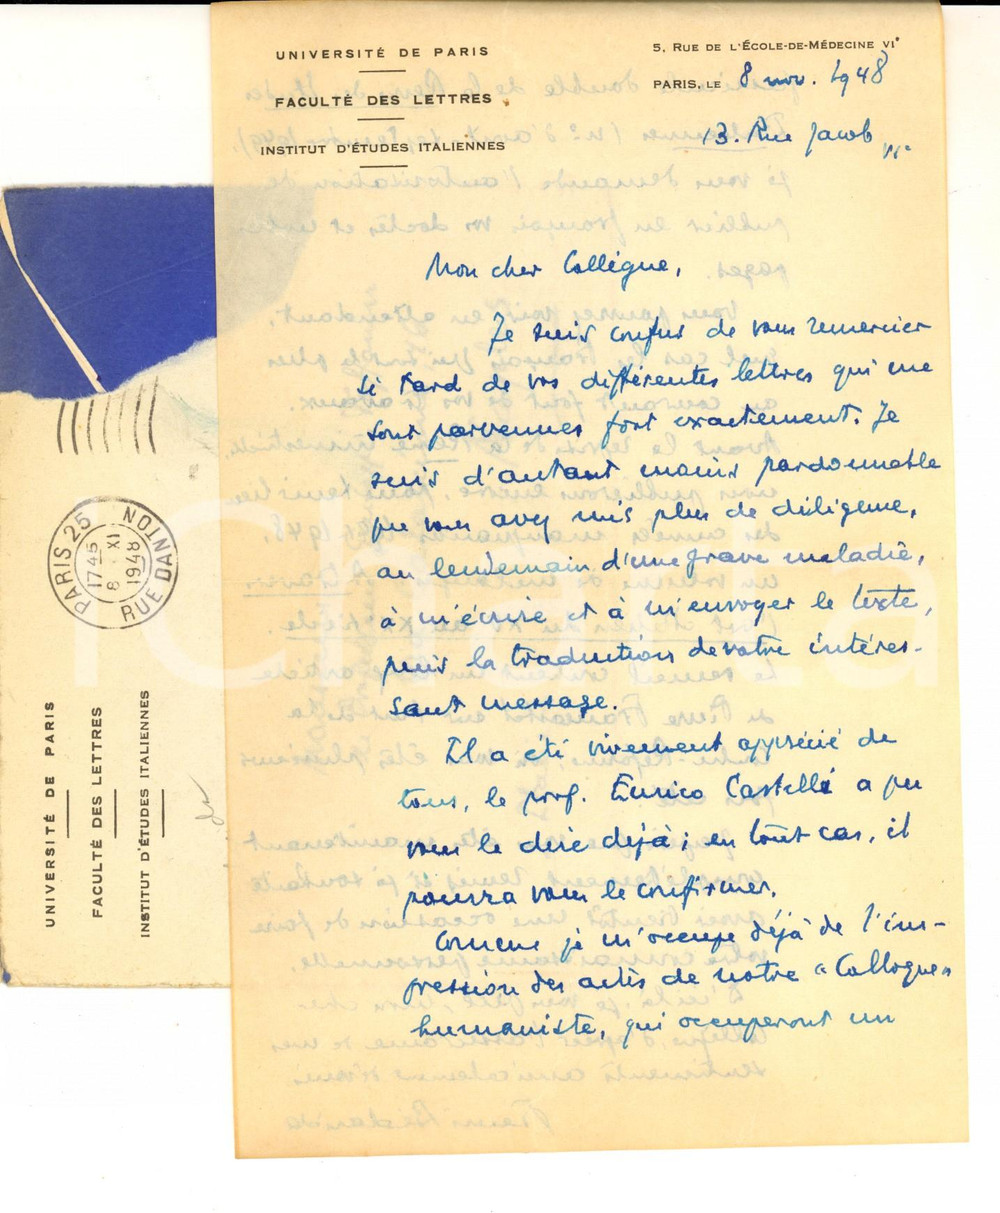 UNIVERSITÉ DE PARIS
FACULTÉ DES LETTRES
INSTITUT D'ÉTUDES ITALIENNES
5, RUE DE L'ÉCOLE-DE-MÉDECINE VIᵉ
PARIS, LE 8 nov. 1948
13. Rue Jacob VIᵉ
Mon cher Collègue,
Je suis confus de vous remercier
si tard de vos différentes lettres qui me
sont parvenues fort exactement. Je
suis d'autant moins pardonnable
que vous avez mis plus de diligence,
au lendemain d'une grave maladie,
à m'écrire et à m'envoyer le texte,
puis la traduction de votre intéres-
sant message.
Il a été vivement apprécié de
tous, le prof. Enrico Castelli a pu
vous le dire déjà ; en tout cas, il
pourra vous le confirmer.
Comme je m'occupe déjà de l'im-
pression des actes de notre "Colloque"
humaniste, qui occuperont un
PARIS 25
RUE DANTON
1745
8 · XI
1948
UNIVERSITÉ DE PARIS
FACULTÉ DES LETTRES
INSTITUT D'ÉTUDES ITALIENNES